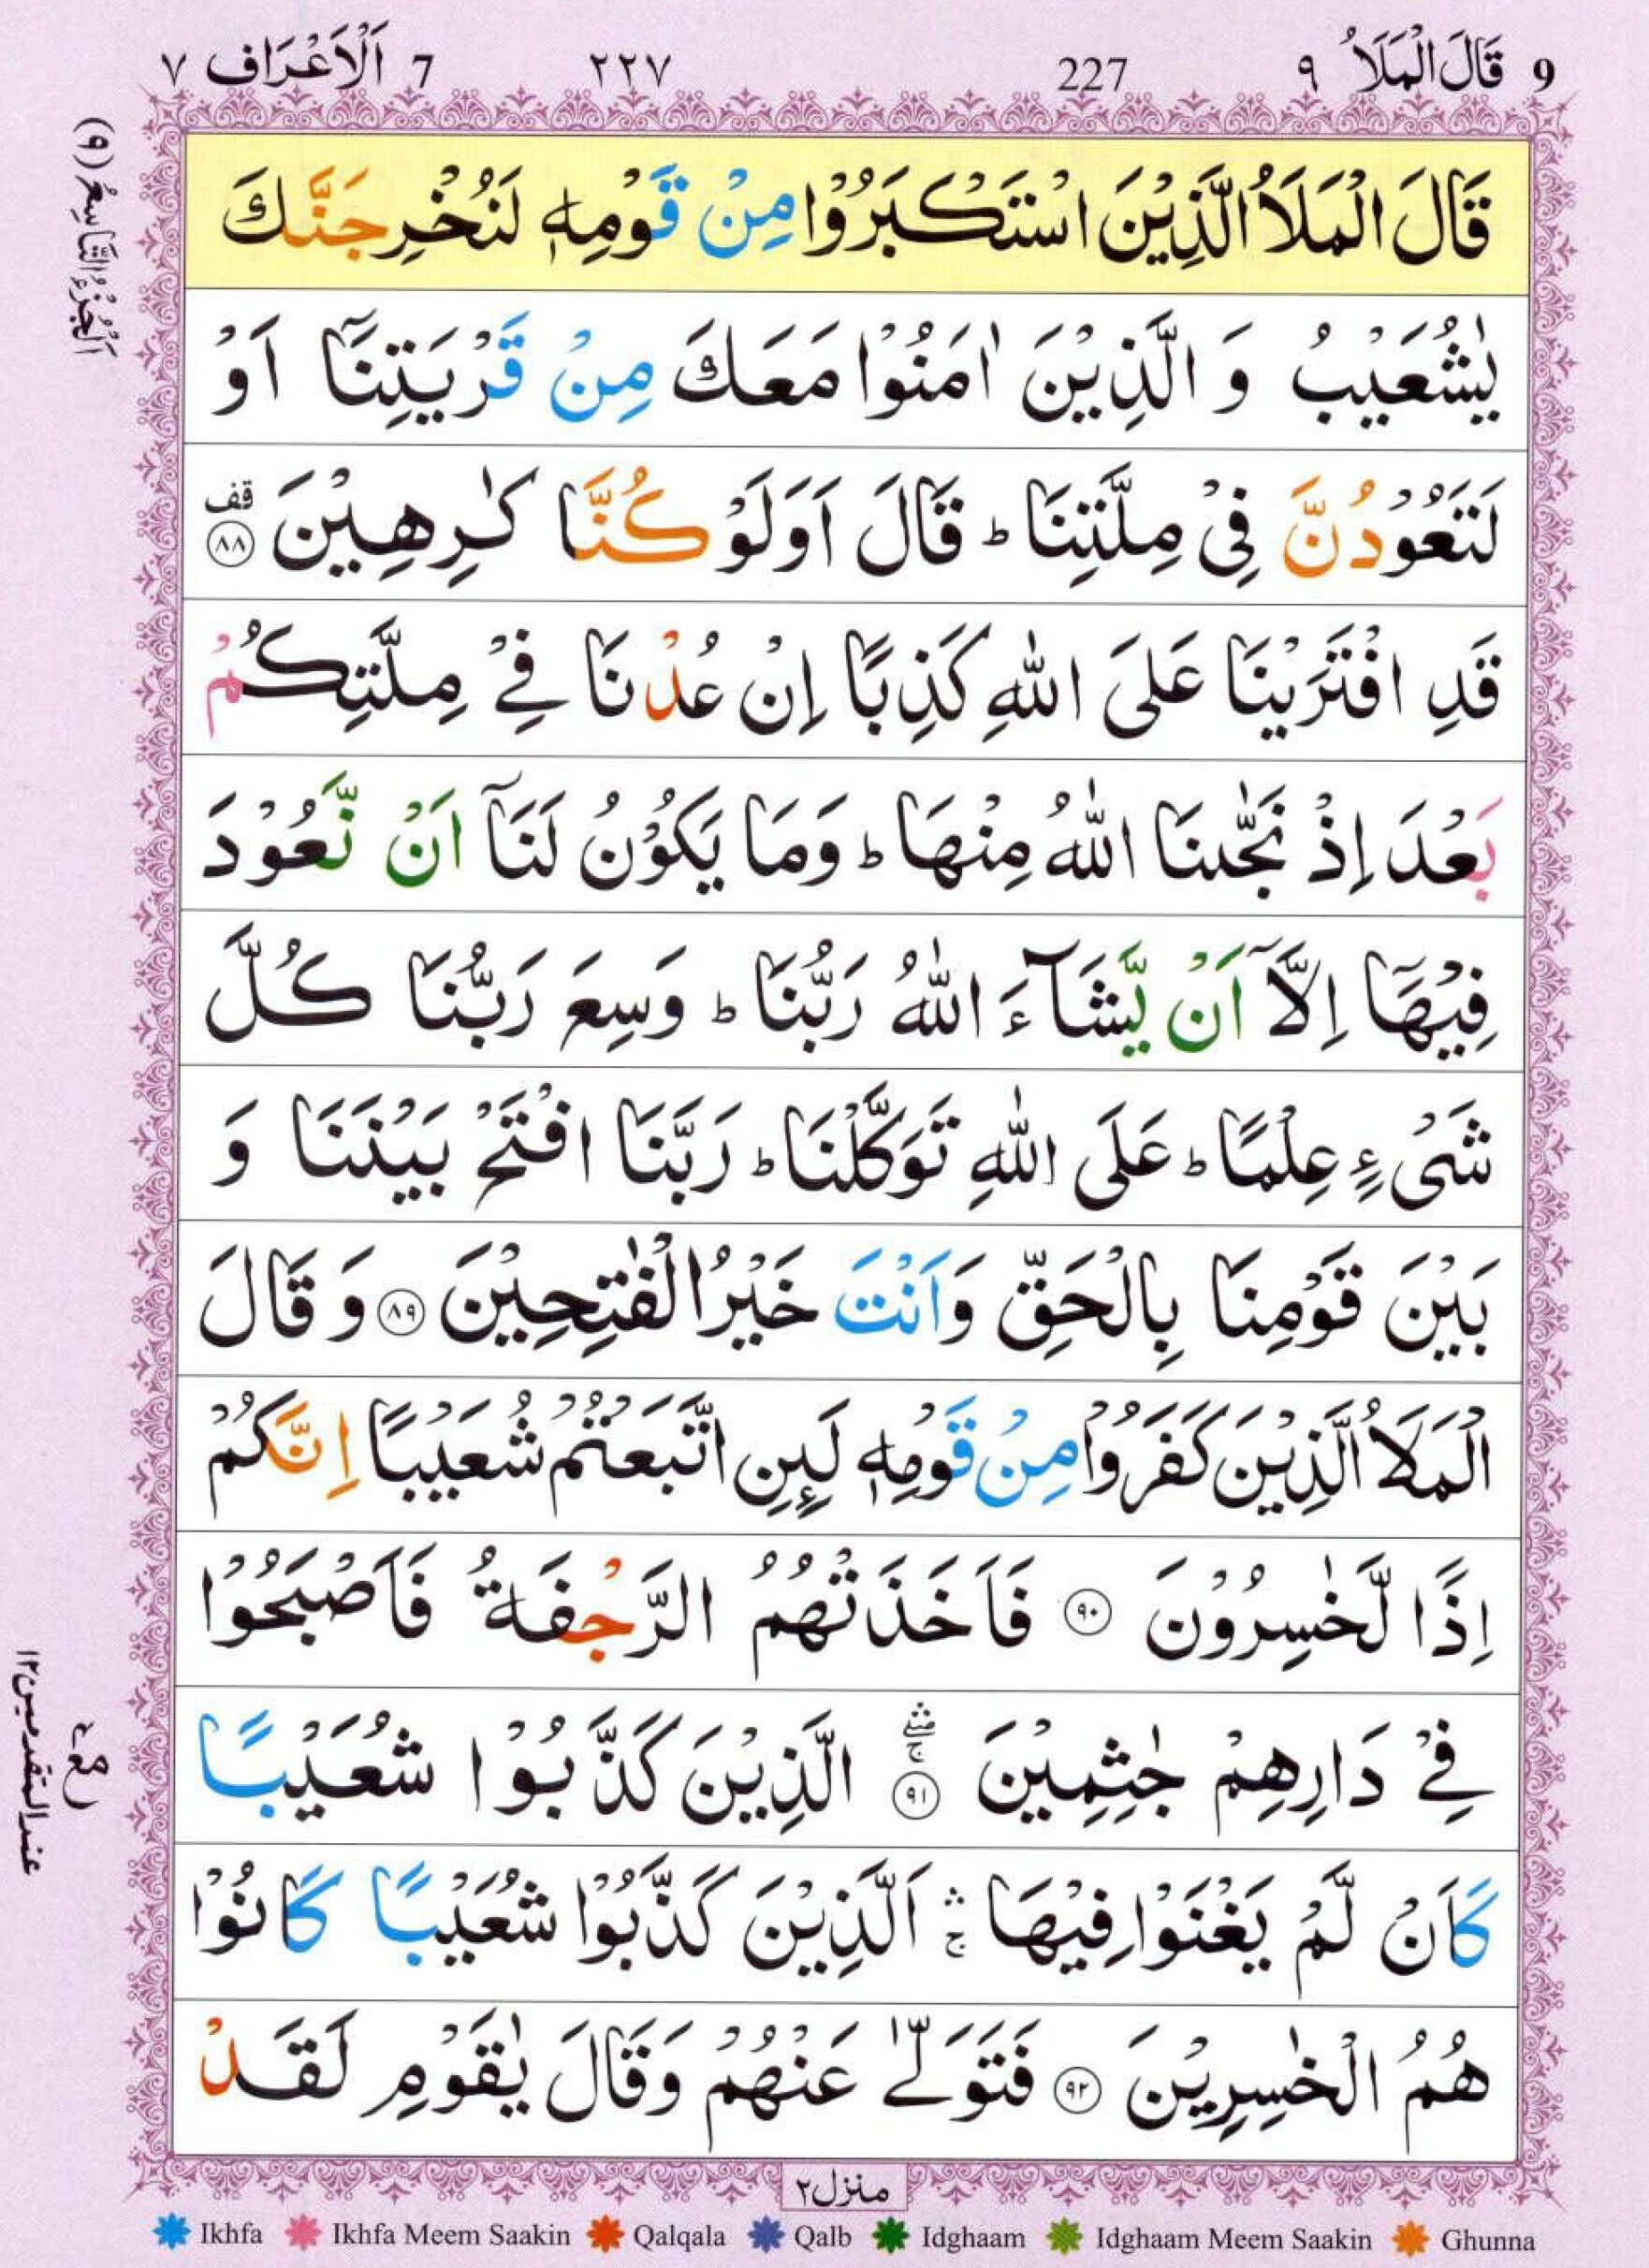 9 قَالَ الْمَلَاُ ٩ 227 ٢٢٧ 7 اَلْاَعْرَاف ٧
اَلْجُزْءُ التَّاسِعُ (٩)
قَالَ الْمَلَاُ الَّذِيْنَ اسْتَكْبَرُوْا مِنْ قَوْمِهٖ لَنُخْرِجَنَّكَ
يٰشُعَيْبُ وَ الَّذِيْنَ اٰمَنُوْا مَعَكَ مِنْ قَرْيَتِنَاۤ اَوْ
لَتَعُوْدُنَّ فِيْ مِلَّتِنَا ؕ قَالَ اَوَلَوْ كُنَّا كٰرِهِيْنَ قف ٨٨
قَدِ افْتَرَيْنَا عَلَى اللّٰهِ كَذِبًا اِنْ عُدْنَا فِيْ مِلَّتِكُمْ
بَعْدَ اِذْ نَجّٰىنَا اللّٰهُ مِنْهَا ؕ وَمَا يَكُوْنُ لَنَاۤ اَنْ نَّعُوْدَ
فِيْهَاۤ اِلَّاۤ اَنْ يَّشَآءَ اللّٰهُ رَبُّنَا ؕ وَسِعَ رَبُّنَا كُلَّ
شَيْءٍ عِلْمًا ؕ عَلَى اللّٰهِ تَوَكَّلْنَا ؕ رَبَّنَا افْتَحْ بَيْنَنَا وَ
بَيْنَ قَوْمِنَا بِالْحَقِّ وَاَنْتَ خَيْرُ الْفٰتِحِيْنَ ٨٩ وَ قَالَ
الْمَلَاُ الَّذِيْنَ كَفَرُوْا مِنْ قَوْمِهٖ لَىِٕنِ اتَّبَعْتُمْ شُعَيْبًا اِنَّكُمْ
اِذًا لَّخٰسِرُوْنَ ٩٠ فَاَخَذَتْهُمُ الرَّجْفَةُ فَاَصْبَحُوْا
فِيْ دَارِهِمْ جٰثِمِيْنَ ۛۚ ٩١ الَّذِيْنَ كَذَّبُوْا شُعَيْبًا
كَاَنْ لَّمْ يَغْنَوْا فِيْهَا ۛۚ اَلَّذِيْنَ كَذَّبُوْا شُعَيْبًا كَانُوْا
هُمُ الْخٰسِرِيْنَ ٩٢ فَتَوَلّٰى عَنْهُمْ وَقَالَ يٰقَوْمِ لَقَدْ
عند المتقدمين ١٢
منزل ٢
Ikhfa Ikhfa Meem Saakin Qalqala Qalb Idghaam Idghaam Meem Saakin Ghunna